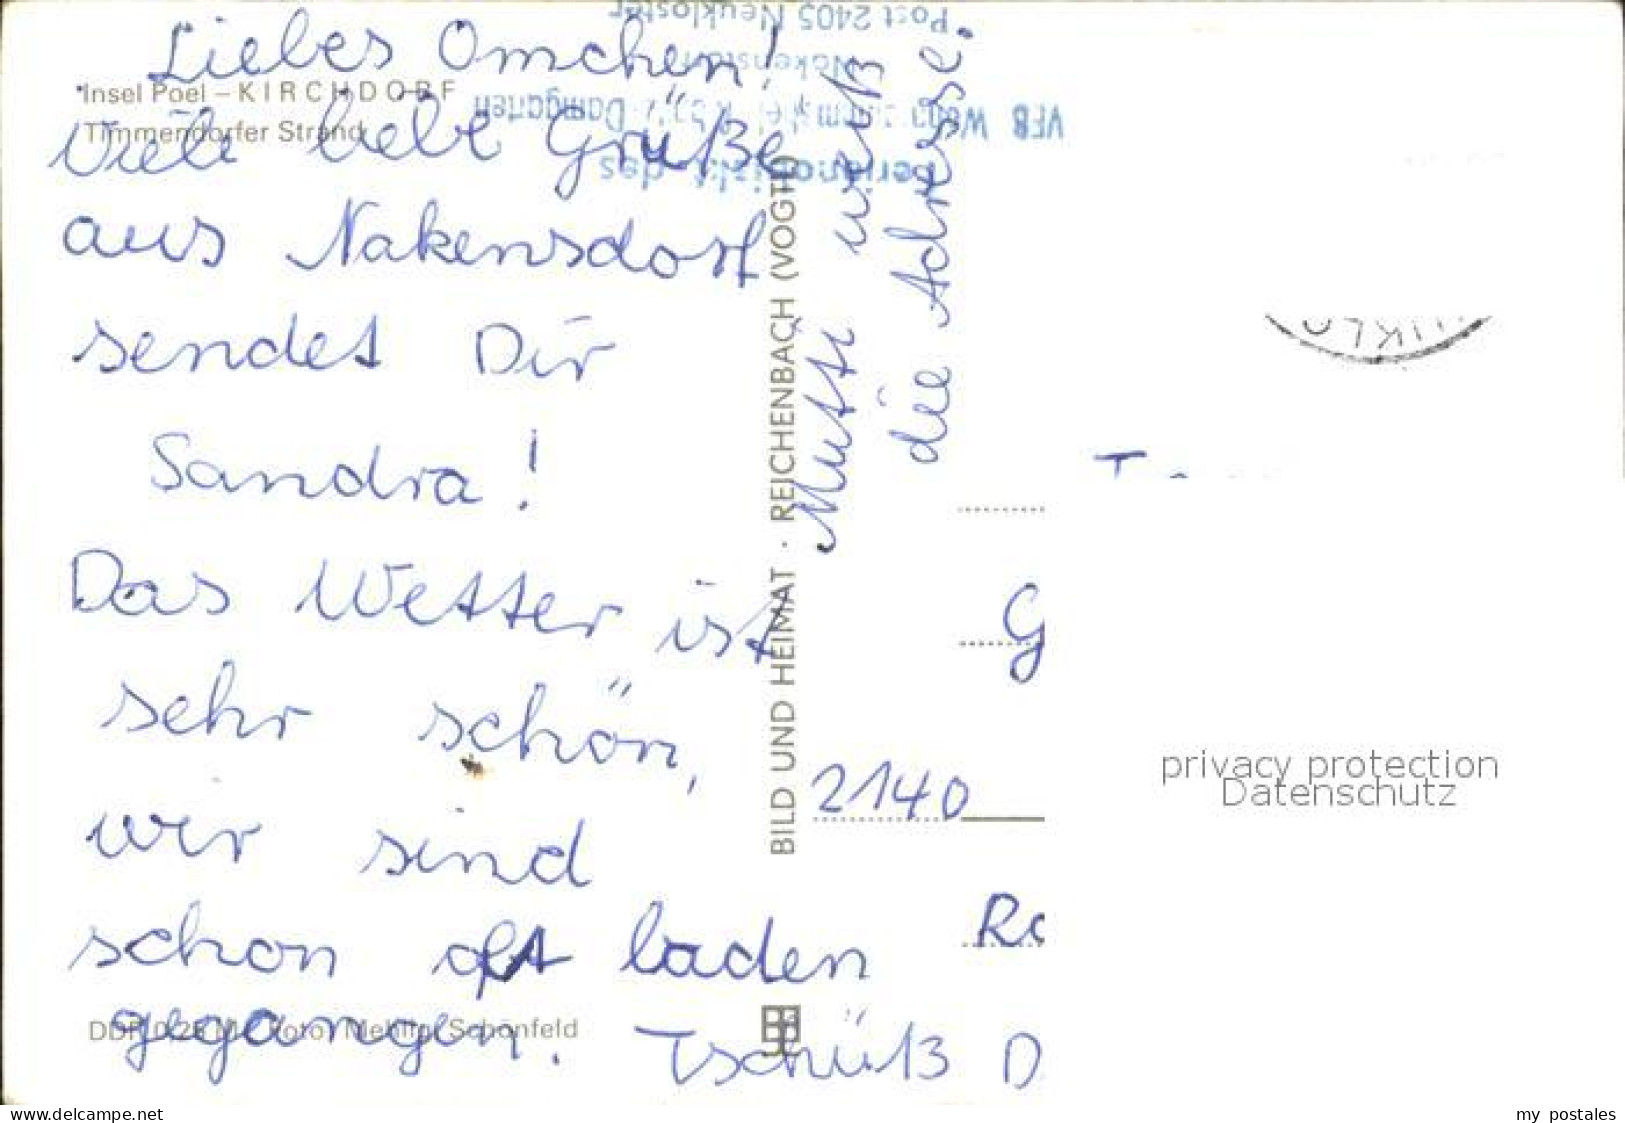 Liebes Omchen!
Insel Poel – KIRCHDORF
Timmendorfer Strand
viele liebe Grüße
aus Nakensdorf
sendet Dir
Sandra!
Das Wetter ist
sehr schön,
wir sind
schon oft baden
gegangen. Tschüß D
DDR 0,25 M Foto: Schönfeld
BILD UND HEIMAT · REICHENBACH (VOGTL)
Mutti
die Adresse.
Post 2405 Neukloster
Nakensdorf
VEB Damgarten
des
UKLO
G
2140
privacy protection
Datenschutz
www.delcampe.net
my_postales